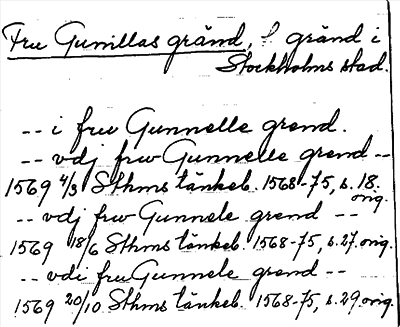 Fru Gunillas gränd, f gränd i
Stockholms stad.
-- i frw Gunnelle grend.
-- vdj frw Gunnelle grend --
1569 4/3 Sthms tänkeb. 1568-75, s. 18.
orig.
-- vdj frw Gunnele grend --
1569 18/6 Sthms tänkeb. 1568-75, s. 27. orig.
-- vdi frw Gunnele grend --
1569 20/10 Sthms tänkeb. 1568-75, s. 29. orig.